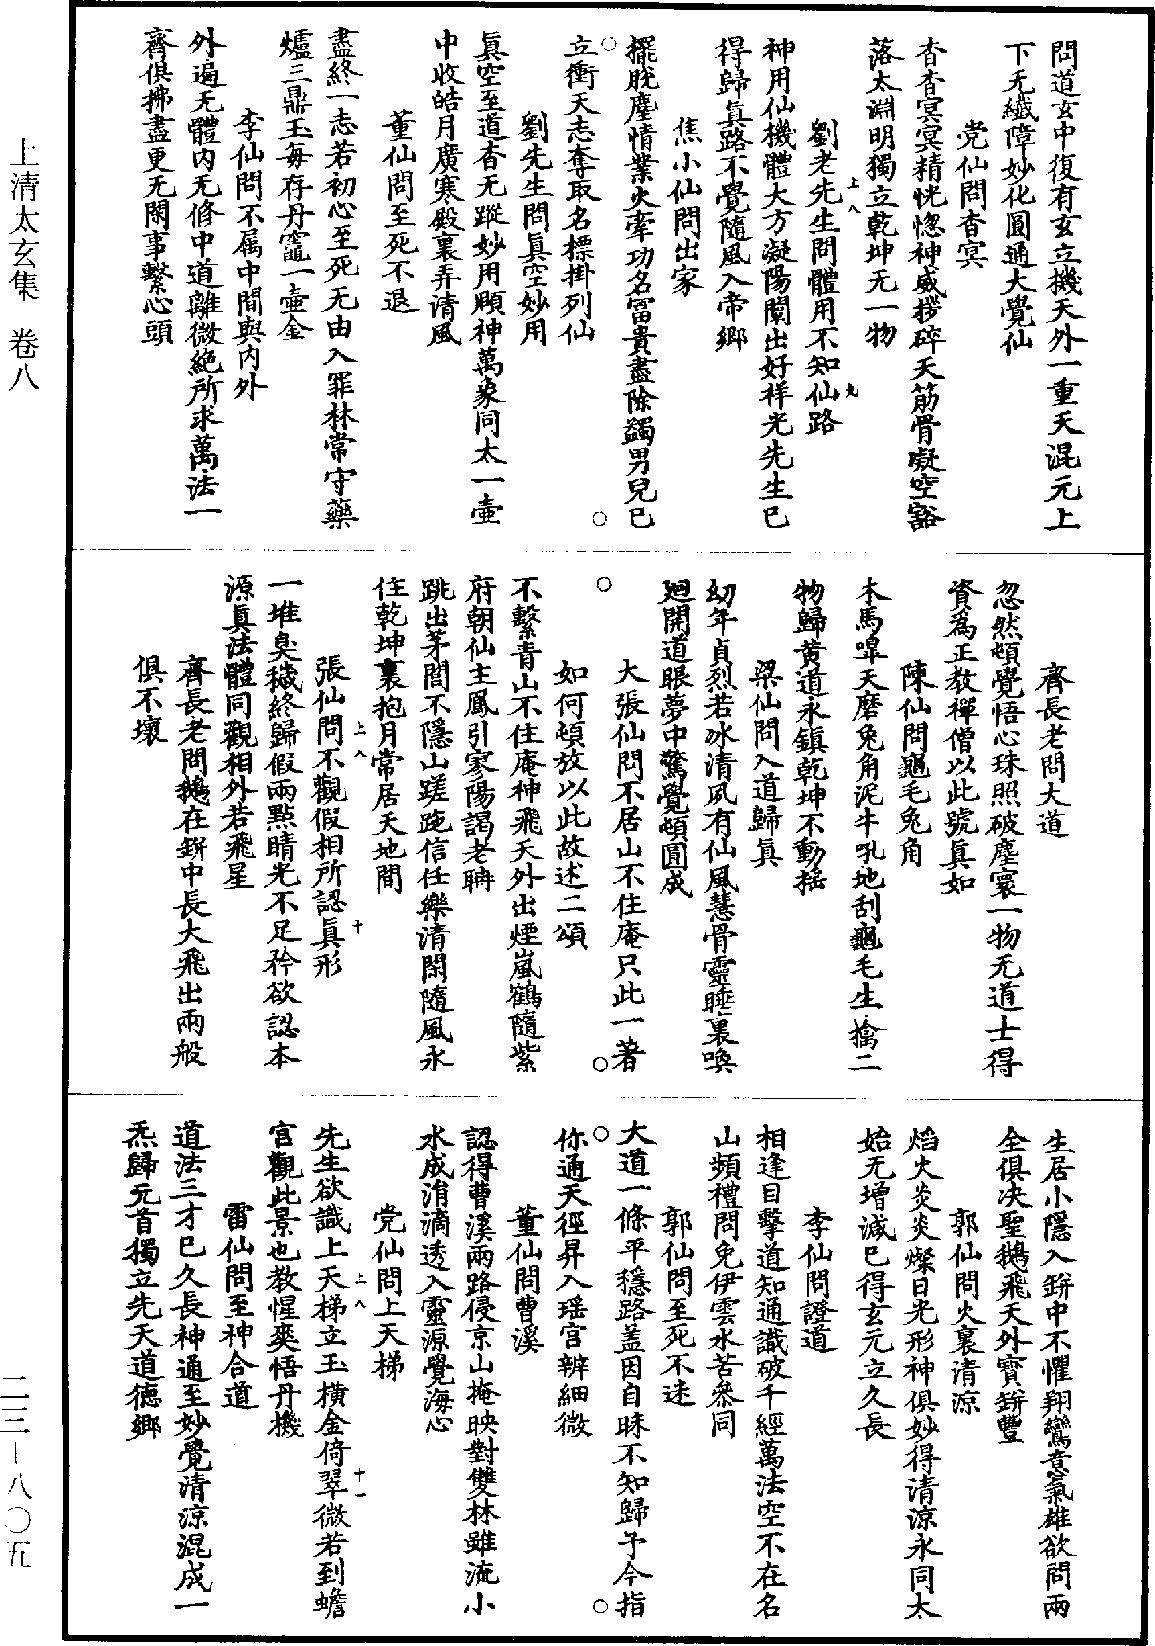 問道玄中復有玄立機天外一重天混元上
下无纎障妙化圓通大覺仙
党仙問杳冥
杳杳冥冥精恍惚神威拶碎天筋骨凝空豁
落太淵明獨立乾坤无一物
劉老先生問體用不知仙路
上八
九
神用仙機體大方凝陽闡出好祥光先生已
得歸眞路不覺隨風入帝鄉
焦小仙問出家
擺脫塵情業火牽功名冨貴盡除蠲男兒已
立衝天志奪取名標掛列仙
劉先生問眞空妙用
眞空至道杳无蹤妙用頤神萬象同太一壷
中收皓月廣寒殿裏弄清風
董仙問至死不退
盡終一志若初心至死无由入罪林常守藥
爐三鼎玉每存丹竈一壷金
李仙問不属中間與内外
外遍无體内无修中道離微絶所求萬法一
齊俱拂盡更无閑事繫心頭
齊長老問大道
忽然頓覺悟心珠照破塵寰一物无道士得
資為正教禪僧以此號眞如
陳仙問龜毛兎角
木馬嘷天磨兎角泥牛吼地刮龜毛生擒二
物歸黄道永鎮乾坤不動揺
梁仙問入道歸眞
幼年貞烈若冰清夙有仙風慧骨靈睡裏喚
廻開道眼夢中驚覺頓圓成
大張仙問不居山不住庵只此一著
如何頓放以此故述二頌
不繫青山不住庵神飛天外出煙嵐鶴隨紫
府朝仙主鳳引寥陽謁老聃
跳出茅閻不隱山蹉跎信任樂清閑隨風永
住乾坤裏抱月常居天地間
張仙問不觀假相所認眞形
上八
十
一堆臭穢終歸假兩㸃睛光不足矜欲認本
源眞法體同觀相外若飛星
齊長老問鵝在缾中長大飛出兩般
俱不壞
生居小隱入缾中不懼翔鸞意氣雄欲問兩
全俱决聖鵝飛天外寳缾豐
郭仙問火裏清凉
焰火炎炎燦日光形神俱妙得清凉永同太
始无増減已得玄元立久長
李仙問證道
相逢目擊道知通識破千經萬法空不在名
山頻禮問免伊雲水苦參同
郭仙問至死不迷
大道一條平穩路盖因自昧不知歸予今指
你通天徑昇入瑶宫辨細微
董仙問曹溪
認得曹溪兩路侵京山掩映對雙林雖流小
水成涓滴透入靈源覺海心
党仙問上天梯
上八
十一
先生欲識上天梯立玉横金倚翠微若到蟾
宫觀此景也教惺爽悟丹機
雷仙問至神合道
道法三才已久長神通至妙覺清凉混成一
炁歸元首獨立先天道德鄉
上清太玄集　卷八
二三—八〇五